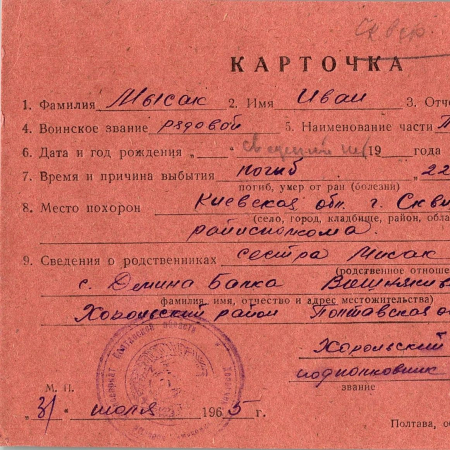 Скв. р.
КАРТОЧКА
1. Фамилия Мысак 2. Имя Иван 3. Отч
4. Воинское звание рядовой 5. Наименование части П
6. Дата и год рождения „ “ 19 года
7. Время и причина выбытия погиб „22
погиб, умер от ран (болезни)
8. Место похорон Киевская обл. г. Скви
(село, город, кладбище, район, обла
райисполкома.
9. Сведения о родственниках сестра Мисак
(родственное отноше
с. Демина Балка
фамилия, имя, отчество и адрес местожительства)
Хорольский район Полтавская о
Хорольский
подполковник
звание
М. П.
„31“ июля 1965 г.
Полтава, об